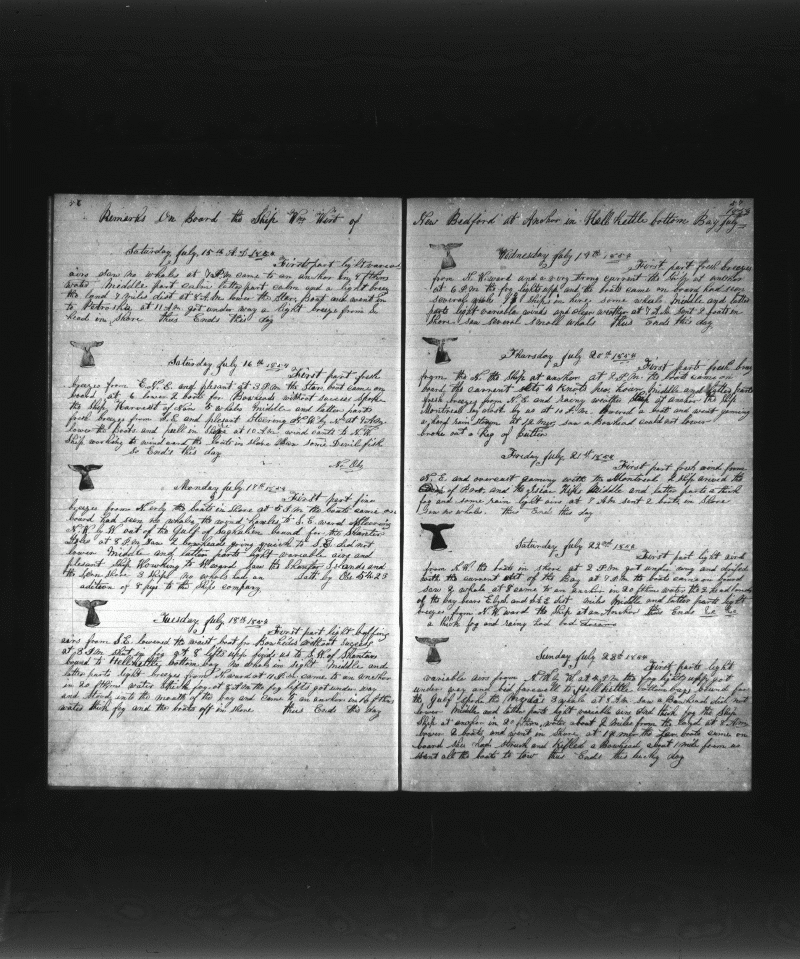 Remarks On Board the Ship Wm Wirt of
Saturday July 15th A.D. 1854
First part light
airs saw no whales at 7 P.M came to an anchor in 8 fthms
water Middle part calm latter part calm and a light breeze
the land 2 miles dist at 8 A.M lower the Star Boat and went in
to at 11 A.M got under way a light breeze from in
head in Shore thus Ends this day
Saturday July 16th 1854
First part fresh
breeze from E.N.E and plesant at 3 P.M the Star boat came on
board at 6 lower 2 boats for Bowheads without success spoke
the Ship Harvest of whales Middle and latter parts
fresh breeze from N.E and plesant Steering N.W by N at 9 A.M
lower the boats and pull in Shore at 10 A.M wind cants to N.W
Ship working to windward the boats in shore saw some Devilfish
So Ends this day
No Ob
Monday July 17th 1854
First part fine
breeze from N erly the boats in Shore at 5 P.M the boats came on
board had seen no whales the wind hauled to S.E ward Steering
N.W by W out of the Gulf of Saghalien bound for the Shantar
Isles at 8 P.M saw 2 bowheads going quick to S.E did not
lower Middle and latter parts light variable airs and
plesant Ship Working to W ward Saw the Shantar Islands and
the Main Shore 3 Ships no whales Lat by Ob 54.23
adition of 8 pigs to the Ship company
Tuesday July 18th 1854
First part light baffling
airs from S.E lowered the waist boat for Bowheads without Success
at 3 P.M Shut in fog at 8 lifts of Shantar
bound to Hellkettle bottom bay no whales in sight Middle and
latter parts light breezes from N ward at 11 P.M came to an anchor
in 20 fthms water thick fog at 9 A.M the fog lifts got under way
and stood into the mouth of the bay and came to an anchor in 16 fthms
water thick fog and the boats off in Shore thus Ends this day
New Bedford at Anchor in Hell kettle bottom Bay July
Wednesday July 19th 1854
First part fresh breezes
from N.W ward and a very strong current the Ship at anchor
at 6 P.M the fog lights up and the boats came on board had seen
several whale Middle and latter
parts light variable winds and clear weather at 7 A.M sent 2 boats in
Shore saw several small whale thus Ends this day
Thursday July 20th 1854
First parts fresh breeze
from the N the Ship at anchor at 8 P.M the boats came on
board the current sets 4 Knots per hour Middle and latter parts
fresh breeze from N.E and rainy weather Still at anchor the Ship
Montreal close by us at 10 A.M lowered a boat and went gaming
a hard rain storm at 12 saw a Bowhead could not lower
broke out a Keg of butter
Friday July 21st 1854
First part fresh wind from
N.E. and overcast gaming with the Montreal 2 Ship
of Port and the Middle and latter parts a thick
fog and some rain light airs at 7 A.M sent 2 boats in Shore
saw no whale thus Ends this day
Saturday July 22nd 1854
First part light wind
from N.W the boats in shore at 2 P.M got under way and drifted
with the current out of the Bay at 7 P.M the boats came on board
saw 2 whale at 8 came to an anchor in 20 fthms water the 2 head lands
of the bay bears E by S and S.S.E dist miles Middle and latter parts light
breezes from N.W ward the Ship at an Anchor thus Ends &c &c
a thick fog and rainy
Sunday July 23th 1854
First parts light
variable airs from N.W by W at 4 P.M the fog lights up got
under way and bad farewell to Hell kettle bottom bay bound for
the Gulf Spoke the 3 whale at 8 P.M saw a Bowhead did not
lower Middle and latter parts light variable airs and thick fog the Ship
Ship at anchor in 20 fthms water about 2 miles from the land at 8 A.M
lower 2 boats, and went in Shore, at 12 the Lar boats came on
board struck and killed a Bowhead, about 1 mile from us
Sent all the boats to tow thus Ends this lucky day